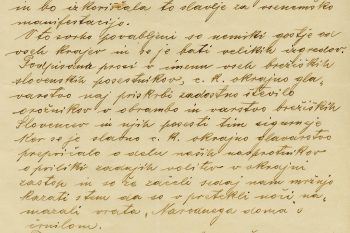 in bo izkoristala to slavlje za vsenemško
manifestacijo.
V to svrho povabljeni so nemški gostje od
vseh krajev in se je bati velikih izgredov.
Podpisana prosi v imenu vseh brežiških
slovenskih posestnikov, c. k. okrajno gla-
varstvo naj priskrbi zadostno število
orožnikov v obrambo in varstvo brežiških
Slovencev in njih posesti tim sigurneje
ker se je slavno c. k. okrajno glavarstvo
prepričalo o delu naših nasprotnikov
o priliki zadnjih volitev v okrajni
zastop in so že začeli sedaj nam mržnjo
kazati s tem da so v pretekli noči na-
mazali vrata "Narodnega doma" s
črnilom.